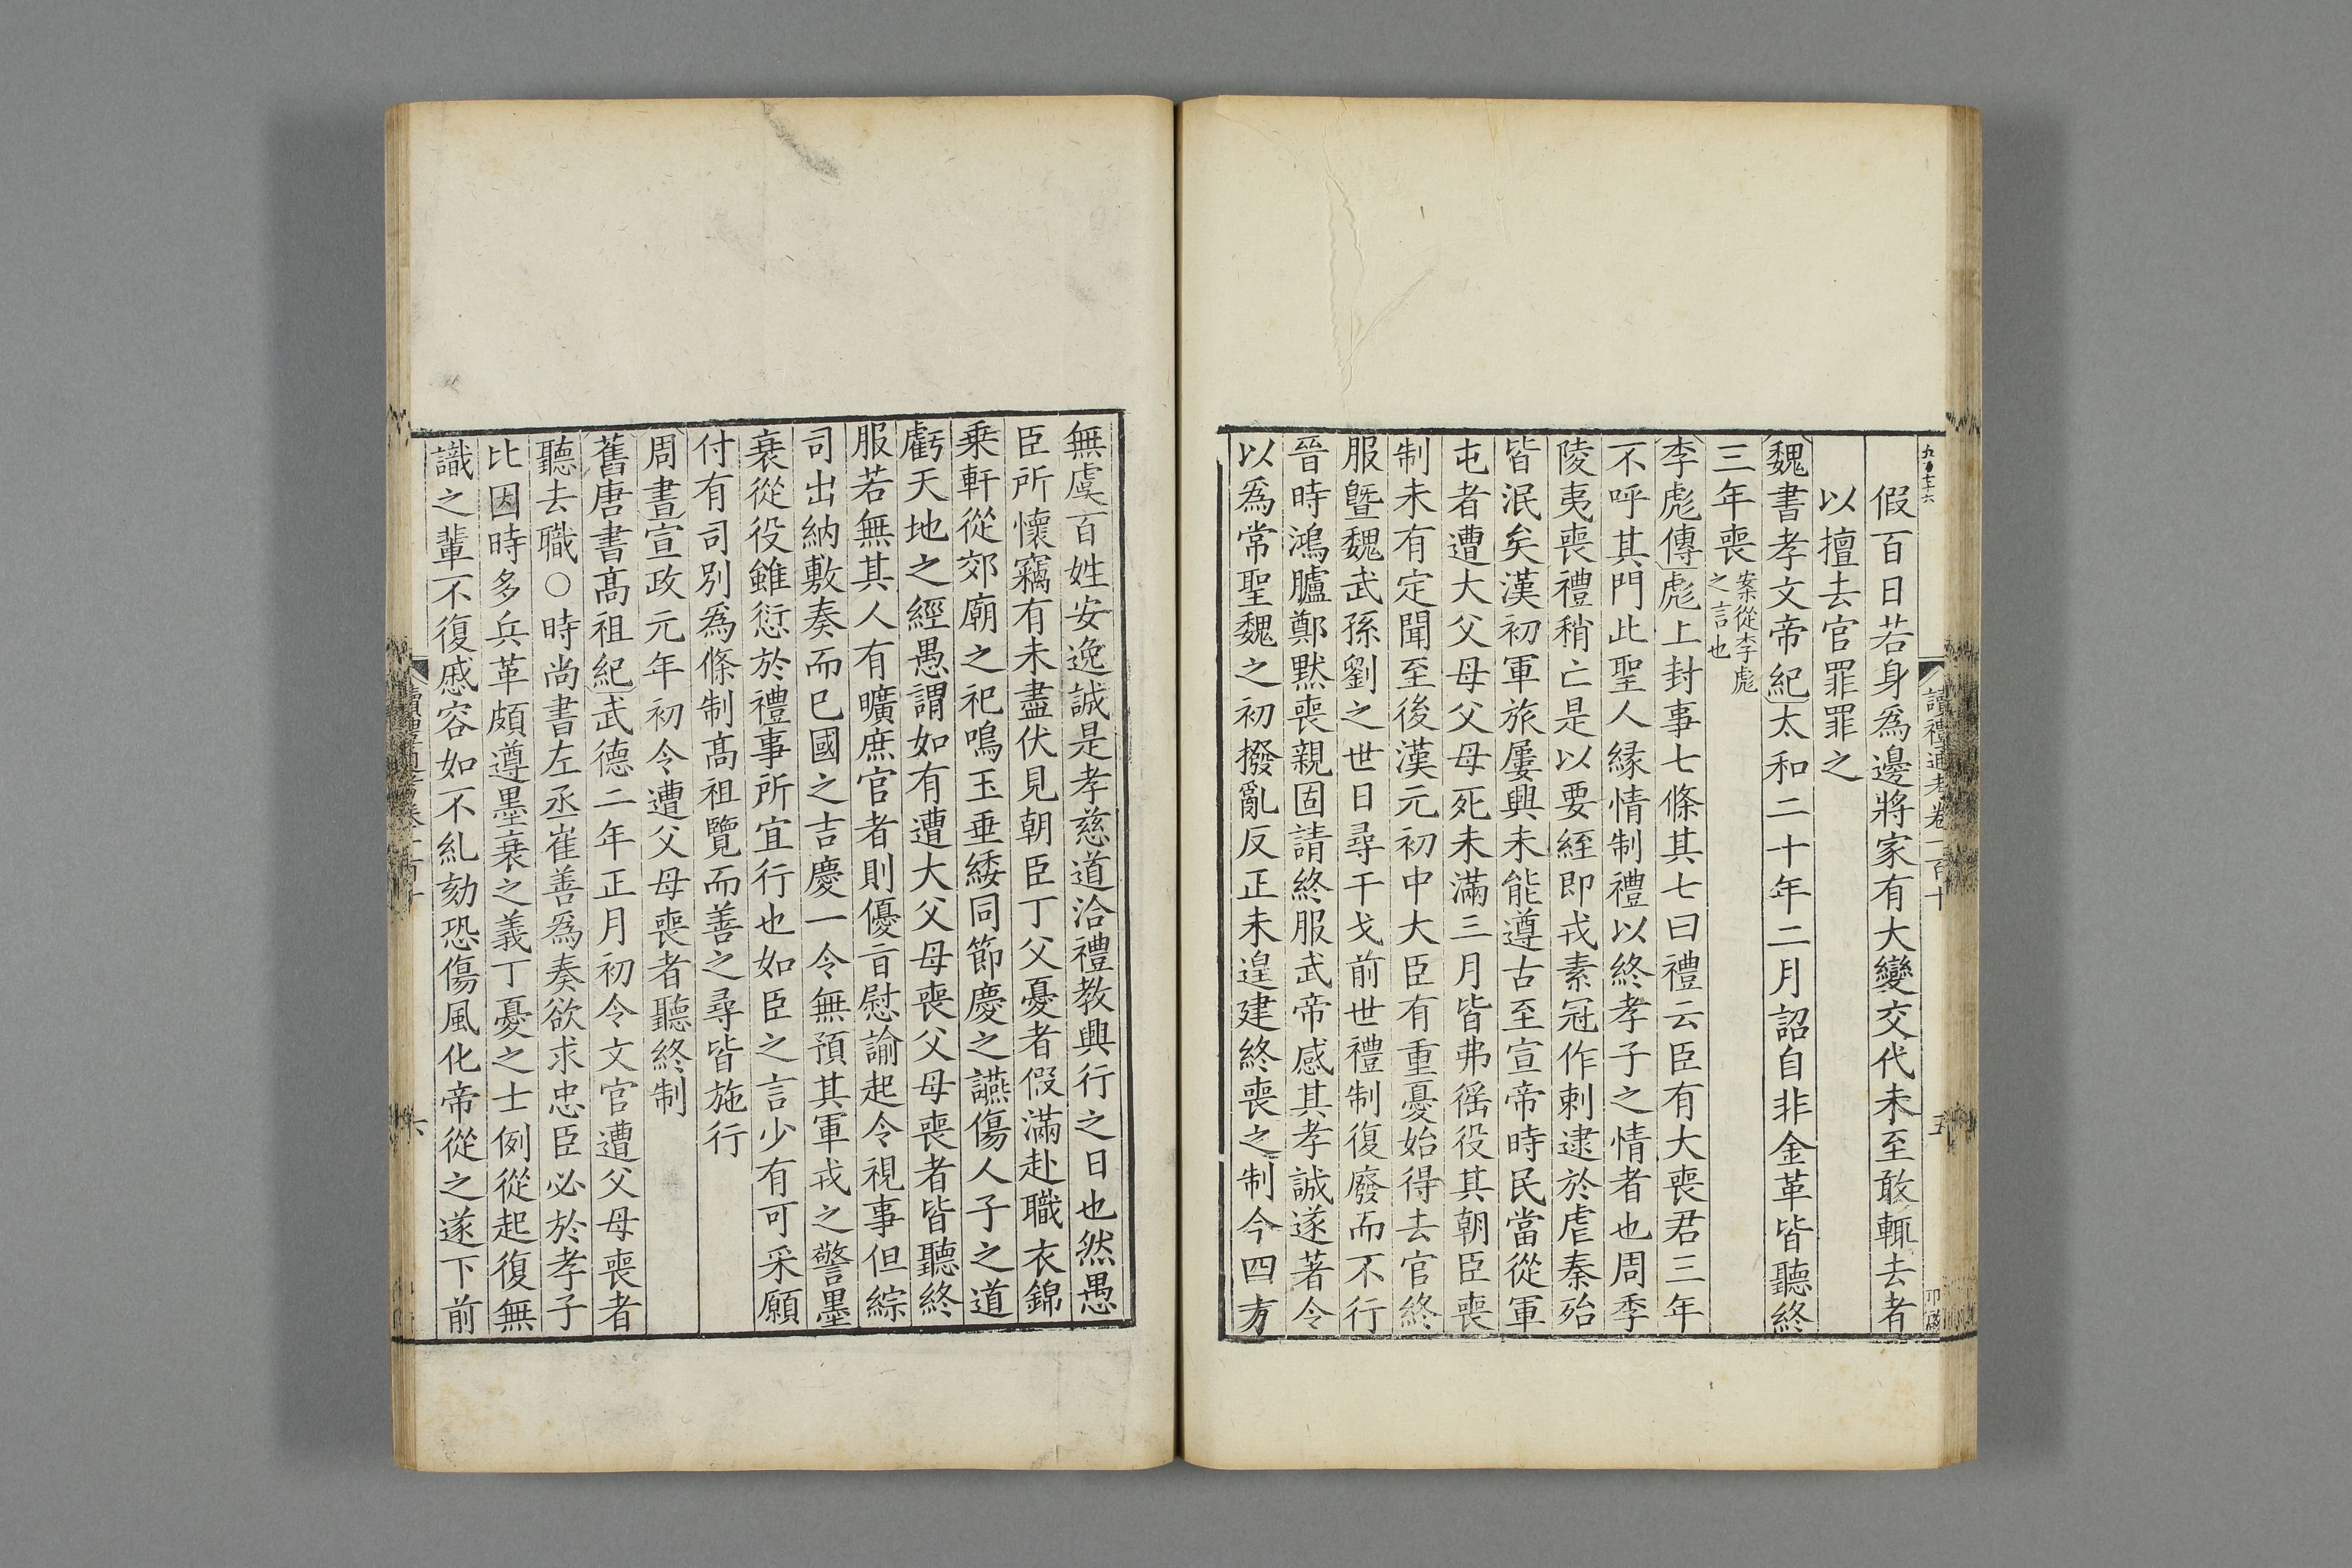 讀禮通考卷一百十
五
假百日若身爲邊將家有大變交代未至敢輒去者
以擅去官罪罪之
魏書孝文帝紀太和二十年二月詔自非金革皆聽終
三年喪案從李彪之言也
李彪傳彪上封事七條其七曰禮云臣有大喪君三年
不呼其門此聖人緣情制禮以終孝子之情者也周季
陵夷喪禮稍亡是以要絰即戎素冠作刺逮於虐秦殆
皆泯矣漢初軍旅屢興未能遵古至宣帝時民當從軍
屯者遭大父母父母死未滿三月皆弗徭役其朝臣喪
制未有定聞至後漢元初中大臣有重憂始得去官終
服曁魏武孫劉之世日尋干戈前世禮制復廢而不行
晉時鴻臚鄭默喪親固請終服武帝感其孝誠遂著令
以爲常聖魏之初撥亂反正未遑建終喪之制今四方
無虞百姓安逸誠是孝慈道洽禮教興行之日也然愚
臣所懷竊有未盡伏見朝臣丁父憂者假滿赴職衣錦
乗軒從郊廟之祀鳴玉垂緌同節慶之讌傷人子之道
虧天地之經愚謂如有遭大父母喪父母喪者皆聽終
服若無其人有曠庶官者則優旨慰諭起令視事但綜
司出納敷奏而已國之吉慶一令無預其軍戎之警墨
衰從役雖愆於禮事所宜行也如臣之言少有可采願
付有司别爲條制高祖覽而善之尋皆施行
周書宣政元年初令遭父母喪者聽終制
舊唐書高祖紀武德二年正月初令文官遭父母喪者
聽去職○時尚書左丞崔善爲奏欲求忠臣必於孝子
比因時多兵革頗遵墨衰之義丁憂之士例從起復無
識之輩不復慼容如不糺劾恐傷風化帝從之遂下前
六